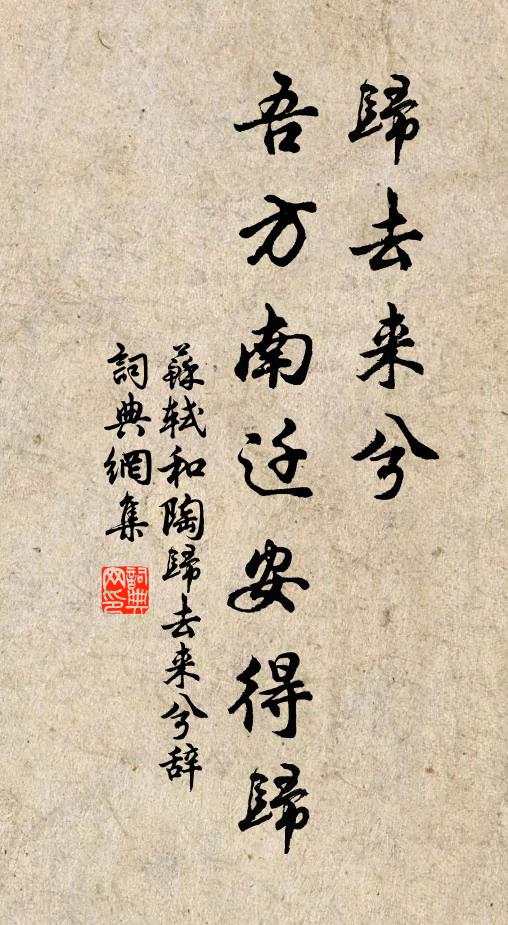 歸去来兮
吾方南迁安得歸
蘇轼和陶歸去来兮辞
詞典網集
詞典网印